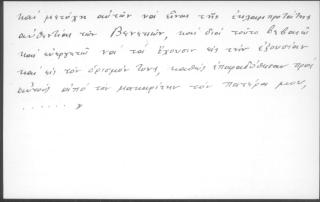 καί μετόχη αὐτῶν νά εἶναι τῆς ἐκλαμπροτάτης
αὐθεντίας τῶν Βενετῶν, καί διά τοῦτο βεβαιῶ
καί εὐεργετῶ νά τά ἔχουσιν εἰς τήν ἐξουσίαν
καί εἰς τόν ὁρισμόν τους, καθώς ἐπαραδόθησαν πρός
αὐτούς ἀπό τόν μακαρίτην τόν πατέρα μου,
. . . . . .